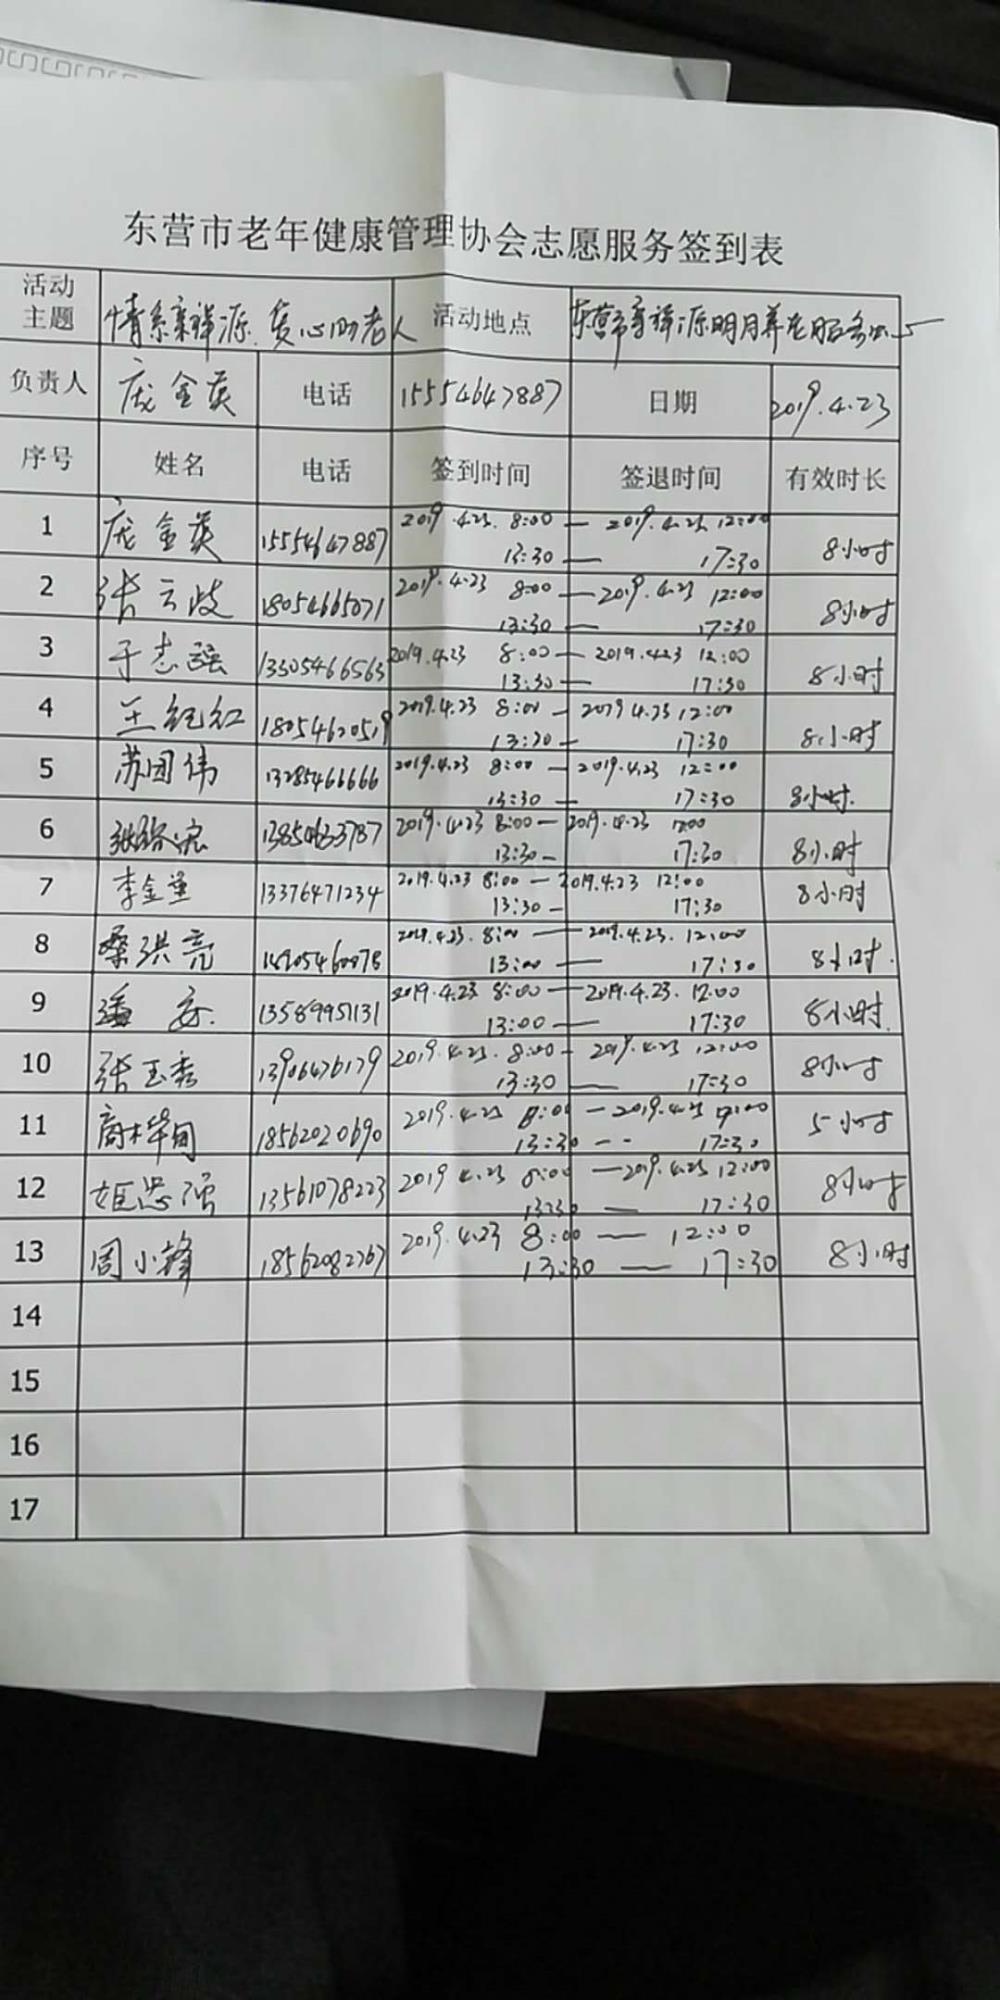 东营市老年健康管理协会志愿服务签到表
活动主题 情系 祥源 爱心助老人 活动地点 东营市 祥源明月养老服务中心
负责人 庞金英 电话 15554647887 日期 2019.4.23
序号 姓名 电话 签到时间 签退时间 有效时长
1 庞金英 15554647887 2019.4.23. 8:00 — 2019.4.23 12:00 8小时
13:30 — 17:30
2 张云岐 18054665071 2019.4.23 8:00 — 2019.4.23 12:00 8小时
13:30 — 17:30
3 于志强 13305466563 2019.4.23 8:00 — 2019.4.23 12:00 8小时
13:30 — 17:30
4 王纪红 18054620519 2019.4.23 8:00 — 2019 4.23 12:00 8小时
13:30 — 17:30
5 苏国伟 13285466666 2019.4.23 8:00 — 2019.4.23 12:00 8小时.
13:30 — 17:30
6 13854633787 2019.4.23 8:00 — 2019.4.23 12:00 8小时
13:30 — 17:30
7 李金 13376471234 2019.4.23 8:00 — 2019.4.23 12:00 8小时
13:30 — 17:30
8 桑洪亮 2019.4.23. 8:00 — 2019.4.23. 12:00 8小时.
13:00 — 17:30
9 潘 13589951131 2019.4.23 8:00 — 2019.4.23. 12:00 8小时.
13:00 — 17:30
10 张玉秀 13906476179 2019.4.23. 8:00 — 2019.4.23 12:00 8小时
13:30 — 17:30
11 商 18562020690 2019.4.23 8:00 — 2019.4.23 5小时
13:30 -- 17:30
12 姬忠强 13561078223 2019 4.23 8:00 — 2019.4.23 12:00 8小时
13:30 — 17:30
13 周小锋 18562082767 2019.4.23 8:00 — 12:00 8小时
13:30 — 17:30
14
15
16
17